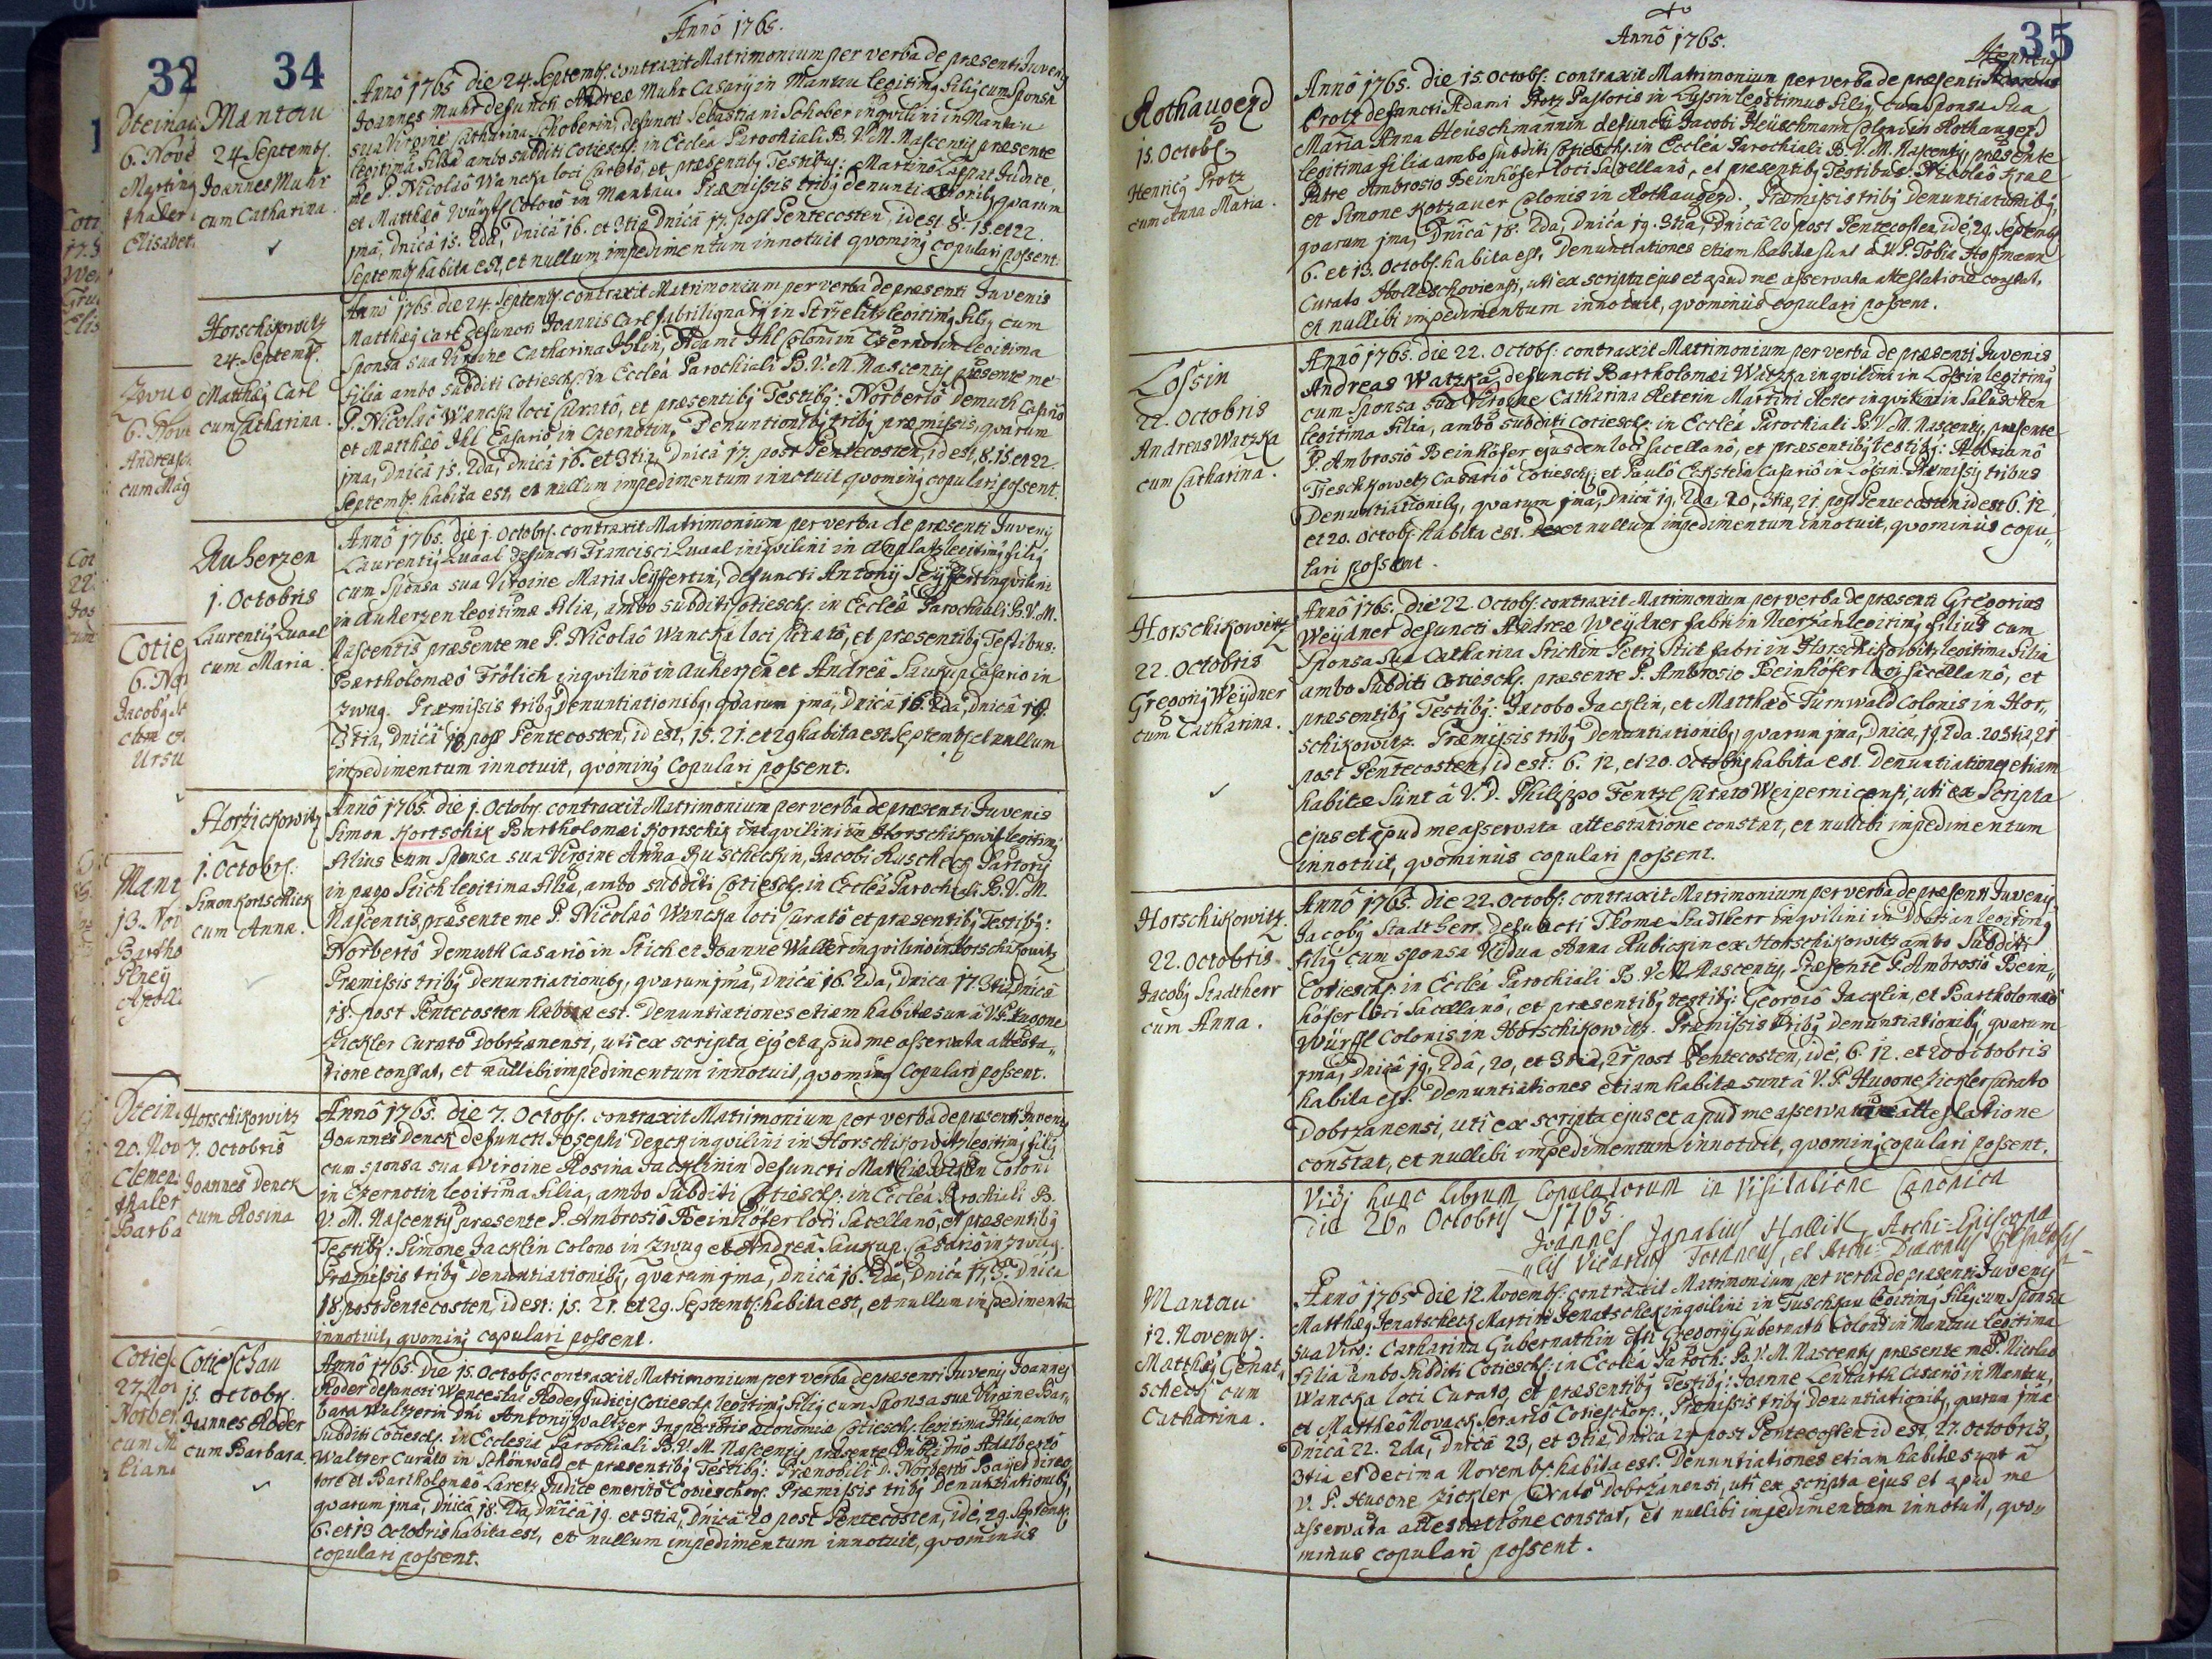 32
34
Annô 1765.
Mantau
24 Septemb.
Joannes Muhr
cum Catharina
Annô 1765 die 24. Septemb. contraxit Matrimonium per verba de præsenti Juvenis
Joannes Muhr defuncti Andreæ Muhr Casarij in Mantau legitimg filig cum sponsa
sua Virgine Catharina Schoberin, defuncti Sebastiani Schober inqvilini in Mantau
legitima filia ambo subditi Cotiesch. in Eccleâ Parochiali B. V. M. Nascentis præsente
me P. Nicolaô Wancka loci Curatô, et præsentibg Testibg: Martinô Judice,
et Matthæô Würfl Colonô in Mantau. Præmissis tribg denuntiationibg, qvarum
1ma, Dnicâ 15. 2da, Dnicâ 16. et 3tia Dnicâ 17. post Pentecosten, id est 8. 15. et 22.
Septemb. habita est, et nullum impedimentum innotuit qvoming copulari possent.
Horschikowitz
24. Septemb.
Matthæg Carl
cum Catharina.
Annô 1765. die 24. Septemb. contraxit Matrimonium per verba de præsenti Juvenis
Matthæg Carl defuncti Joannis Carl fabri lignarij in Strzelitz legitimg filig cum
sponsa sua Virgine Catharina Ihlin, Adami Ihl Coloni in Czernotin legitima
filia ambo subditi Cotiesch. in Eccleâ Parochiali B. V. M. Nascentis præsente me
P. Nicolaô Wancka loci Curatô, et præsentibg Testibg: Norbertô Demuth Casariô
et Matthæô Ihl Casariô in Czernotin, Denuntionibg tribg præmissis, qvarum
1ma, Dnicâ 15. 2da, Dnicâ 16. et 3tia, Dnicâ 17. post Pentecosten, id est, 8. 15. et 22.
Septemb. habita est, et nullum impedimentum innotuit qvoming copulari possent.
Auherzen
1. Octobris
Laurentig Quaal
cum Maria.
Annô 1765. die 1. Octobr. contraxit Matrimonium per verba de præsenti Juvenis
Laurentig Quaal defuncti Francisci Quaal inqvilini in legitimg filig
cum sponsa sua Virgine Maria Seÿffertin, defuncti Antonij Seÿffert inqvilini
in Auherzen legitima filia, ambo subditi Cotiesch. in Eccleâ Parochiali B. V. M.
Nascentis præsente me P. Nicolaô Wancka loci Curatô, et præsentibg Testibus:
Bartholomæô Frölich inqvilinô in Auherzen et Andreâ Saukup Casario in
Zwug. Præmissis tribg Denuntiationibg, qvarum 1ma, Dnicâ 16. 2da, Dnicâ 17.
3tia, Dnicâ 18. post Pentecosten, id est, 15. 21. et 29 habita est Septemb. et nullum
impedimentum innotuit, qvoming Copulari possent.
Horzickowitz
1. Octobr.
Simon Kortschick
cum Anna.
Annô 1765. die 1. Octobr. contraxit Matrimonium per verba de præsenti Juvenis
Simon Kortschik Bartholomæi Kortschik inqvilini in Horschikowitz legitimg
filius cum sponsa sua Virgine Anna Ruscheckin, Jacobi Ruscheck Pastoris
in pago Stich legitima filia, ambo subditi Cotiesch. in Eccleâ Parochiali B. V. M.
Nascentis, præsente me P. Nicolaô Wancka loci Curatô et præsentibg Testibg:
Norbertô Demuth Casariô in Stich et Joanne Waller inqvilinô in Horschikowitz
Præmissis tribg denuntiationibg, qvarum 1ma, Dnicâ 16. 2da, Dnica 17. 3tia, Dnicâ
18. post Pentecosten habita est. Denuntiationes etiam habitæ sun à V. P. Hugone
Zickler Curatô Dobrzanensi, uti ex scripta ejg et apud me asservata attesta„
tione constat, et nullibi impedimentum innotuit, qvoming Copulari possent.
Horschikowitz
7. Octobris
Joannes Denck
cum Rosina
Annô 1765. die 7. Octobr. contraxit Matrimonium per verba de præsenti Juvenis
Joannes Denck defuncti Josephi Denck inqvilini in Horschikowitz legitimg filig
cum sponsa sua Virgine Rosina Jacklinin defuncti Mathiæ Jacklin Coloni
in Czernotin legitima filia, ambo Subditi Cotiesch. in Eccleâ Parochiali B.
V. M. Nascentis præsente P. Ambrosiô Beinhöfer loci Sacellanô, et præsentibg
Testibg: Simone Jacklin Colono in Zwug et Andreâ Saukup Casariô in Zwug.
Præmissis tribg Denuntiationibg, qvarum 1ma, Dnicâ 16. 2da, Dnicâ 17. 3. Dnica
18. post Pentecosten, id est: 15. 21. et 29. Septemb. habita est, et nullum impedimentũ
innotuit, qvoming copulari possent.
Cotieschau
15. Octobr.
Joannes Roder
cum Barbara.
Annô 1765. die 15. Octobr. contraxit Matrimonium per verba de præsenti Juvenis Joannes
Roder defuncti Wenceslai Roder Judicis Cotiesch. legitimg filig cum Sponsa sua Virgine Bar„
bara Waltzerin Dni Antonij Waltzer Inspectoris œconomiæ Cotiesch. legitima filia, ambo
Subditi Cotiesch. in Ecclesia Parochiali B. V. M. Nascentis præsente Adalbertô
Waltzer Curato in Schönwald et præsentibg Testibg: Prænobili D. Norbertô Bayer Direc„
tore et Bartholomæô Laretz Judice emeritô Cotieschov. Præmissis tribg Denuntiationibg,
qvarum 1ma, Dnicâ 18. 2da, Dnicâ 19. et 3tia, Dnicâ 20 post Pentecosten, id e, 29. Septemb.
6. et 13 Octobris habita est, et nullum impedimentum innotuit, qvominus
copulari possent.
35
Annô 1765.
Rothaugezd
15. Octobr.
Henricg Protz
cum Anna Maria.
Annô 1765. die 15. Octobr. contraxit Matrimonium per verba de præsenti Henricus
Protz defuncti Adami Protz Pastoris in Lossin legitimus filig, cum sponsa sua
Maria Anna Heüschmannin defuncti Jacobi Heüschmann Coloni in Rothaugezd
legitima filia ambo subditi Cotiesch. in Eccleâ Parochiali B. V. M. Nascentis, præsente
Patre Ambrosio Beinhöfer loci Sacellanô, et præsentibg Testibus: Nicolaô Kral
et Simone Kotzauer Colonis in Rothaugezd. Præmissis tribg Denuntiationibg,
qvarum 1ma, Dnicâ 18. 2da, Dnica 19. 3tia, Dnicâ 20 post Pentecosten, id e, 29. Septemb
6. et 13. Octobr. habita est. Denuntiationes etiam habitæ sunt à V. P. Tobia Hoffmann
Curato Holleschoviensi, uti ex scripta ejus et apud me asservata attestatione constat,
et nullibi impedimentum innotuit, qvominus copulari possent.
Lossin
22. Octobris
Andreas Watzka
cum Catharina.
Annô 1765. die 22. Octobr. contraxit Matrimonium per verba de præsenti Juvenis
Andreas Watzka, defuncti Bartholomæi Watzka inqvilini in Lossin legitimg
cum sponsa sua Virgine Catharina Peterin Martini Peter inqvilini in Saluschen
legitima filia, ambo subditi Cotiesch. in Eccleâ Parochiali B. V. M. Nascentis, præsente
P. Ambrosiô Beinhöfer ejusdem loci Sacellanô, et præsentibg testibg: Adrianô
Tieschkowetz Casariô Cotiesch. et Paulô Eckstein Casariô in Lossin. Præmissis tribus
Denuntiationibg, qvarum 1ma, Dnicâ 19. 2da, 20, 3tia, 21. post Pentecosten id est 6. 12,
et 20. Octobr. habita est. et nullum impedimentum innotuit, qvominus copu„
lari possent.
Horschikowitz
22. Octobris
Gregorig Weÿdner
cum Catharina.
Annô 1765. die 22. Octobr. contraxit Matrimonium per verba de præsenti Gregorius
Weÿdner defuncti Andreæ Weÿdner fabri in legitimg filius cum
Sponsa Sua Catharina Stichin Petri Stich fabri in Horschikowitz legitima filia
ambo Subditi Cotiesch. præsente P. Ambrosio Beinhöfer loci Sacellanô, et
præsentibg Testibg: Jacobo Jacklin, et Matthæo Turnwald Colonis in Hor„
schikowitz. Præmissis tribg Denuntiationibg, qvarum 1ma, Dnica, 19. 2da. 20 3tia, 21
post Pentecosten, id est: 6. 12, et 20. Octobris habita est. Denuntiationes etiam
habitæ sunt â V. D. Philippo Fentzl Curato Weipernicensi, uti ex scripta
ejus et apud me asservata attestatione constat, et nullibi impedimentum
innotuit, qvominus copulari possent.
Horschikowitz.
22. Octobris
Jacobg Stadtherr
cum Anna.
Annô 1765. die 22. Octobr. contraxit Matrimonium per verba de præsenti Juvenis
Jacobg Stadtherr, defuncti Thomæ Stadtherr inqvilini in Dobrzan legitimg
filig cum sponsa Vidua Anna Kubickin ex Horschikowitz ambo Subditi
Cotiesch. in Eccleâ Parochiali B. V. M. Nascentis, Præsente P. Ambrosiô Bein„
höfer loci Sacellanô, et præsentibg testibg: Georgiô Jacklin, et Bartholomæô
Würfl Colonis in Horschikowitz. Præmissis tribg Denuntiationibg qvarum
1ma, Dnicâ 19. 2dâ, 20, et 3tia, 21 post Pentecosten, id e, 6. 12. et 20 Octobris
habita est. Denuntiationes etiam habitæ sunt à V. P. Hugone Zickler Curato
Dobrzanensi, uti ex scripta ejus et apud me asservata attestatione
constat, et nullibi impedimentum innotuit, qvoming copulari possent.
Vidi hunc librum Copulatorum in Visitatione Canonica
die 26. Octobris 1765.
Joannes Ignatius Archi-Episcopa„
„lis Vicarius Foraneus, et Archi-Diaconus
Mantau
12. Novemb.
Matthæg Genat„
scheck cum
Catharina.
Annô 1765 die 12. Novemb. contraxit Matrimonium per verba de præsenti Juvenis
Matthæg Jenatscheck Martini Jenatschek inqvilini in Tuschkau legitimg filig cum Sponsa
sua Virg: Catharina Gubernathin dfti Gregorij Gubernath Coloni in Mantau legitima
filia ambo subditi Cotiesch. in Eccleâ Paroch: B. V. M. Nascentis præsente me P. Nicolao
Wancka loci Curato, et præsentibg Testibg: Joanne Lenharth Casariô in Mantau,
et Matthæô Novack Cotieschov. Præmissis tribg denuntiationibg, qvarum 1ma
Dnicâ 22. 2da, Dnicâ 23, et 3tia, Dnica 24 post Pentecosten id est, 27. Octobris,
3tia et decima Novemb. habita est. Denuntiationes etiam habitæ sunt â
V. P. Hugone Zickler Curato Dobrzanensi, uti ex scripta ejus et apud me
asservata attestatione constat, et nullibi impedimentum innotuit, qvo„
minus copulari possent.